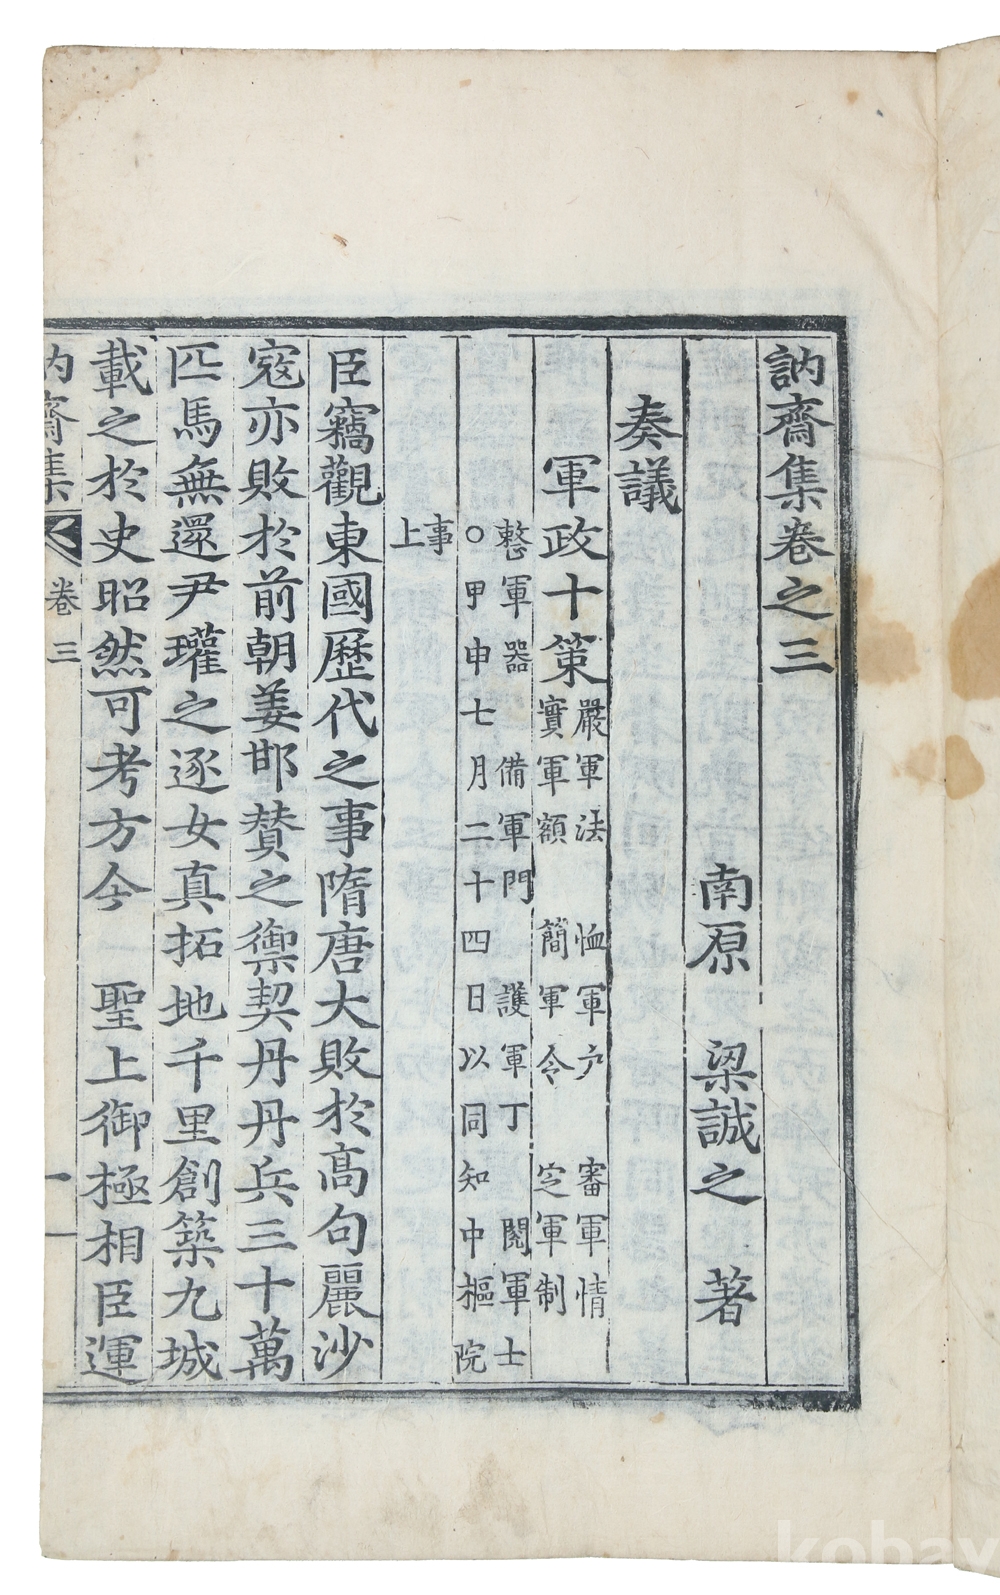 訥齋集卷之三
南原 梁誠之 著
奏議
軍政十策
嚴軍法 恤軍户 審軍情
實軍額 簡軍令 㝎軍制
整軍器 備軍門 護軍丁 閱軍士
○甲申七月二十四日以同知中樞院
事
上
臣竊觀東國歷代之事隋唐大敗於高句麗沙
寇亦敗於前朝姜邯賛之禦契丹丹兵三十萬
匹馬無還尹瓘之逐女真拓地千里創築九城
載之於史昭然可考方今 聖上御極相臣運
訥齋集 卷三 一
kobay